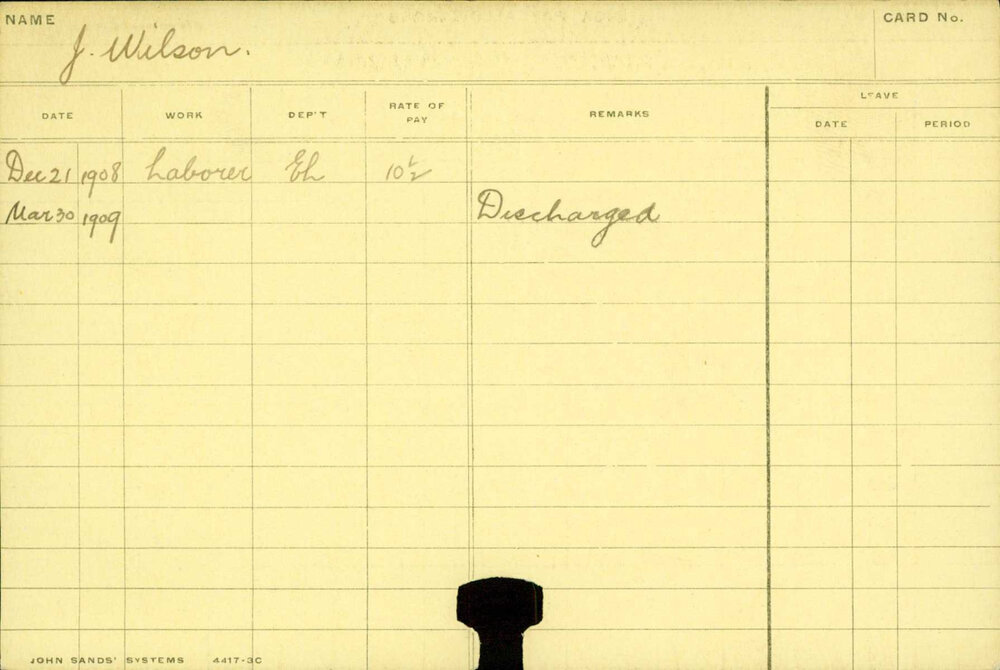 NAME J. Wilson. CARD No.
DATE WORK DEP'T RATE OF PAY REMARKS LEAVE
DATE PERIOD
Dec 21 1908 Laborer Eh 10½
Mar 30 1909 Discharged
JOHN SANDS' SYSTEMS 4417-3C